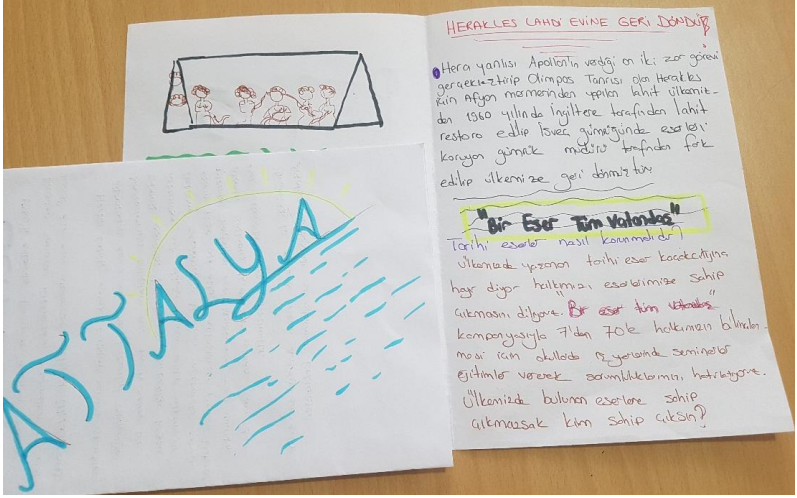 HERAKLES LAHDİ EVİNE GERİ DÖNDÜ!
Hera yanlısı Apollon'ın verdiği on iki zor görevi
gerçekleştirip Olimpos Tanrısı olan Herakles
için Afyon mermerinden yapılan lahit ülkemiz-
den 1960 yılında İngiltere tarafından lahit
restoro edilip İsveç gümrüğünde eserleri
koruyan gümrük müdürü tarafından fark
edilip ülkemize geri dönmüştür
"Bir Eser Tüm Vatandaş"
Tarihi eserler nasıl korunmalıdır?
Ülkemizde yaşanan tarihi eser kaçakcılığına
hayır diyor halkımızı eserlerimize sahip
çıkmasını diliyoruz. "Bir eser tüm vatandaş"
kampanyasıyla 7'den 70'e halkımızın bilinclen-
mesi için okullarda iş yerlerinde seminerler
eğitimler vererek sorumluluklarımızı hatırlatıyoruz.
Ülkemizde bulunan eserlere sahip
çıkmazsak kim sahip çıksın?
ATTALYA